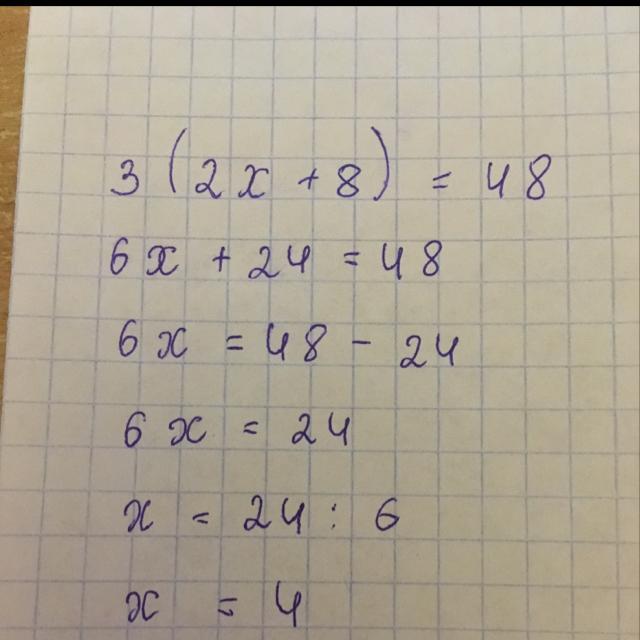 3(2x + 8) = 48
6x + 24 = 48
6x = 48 - 24
6x = 24
x = 24 : 6
x = 4